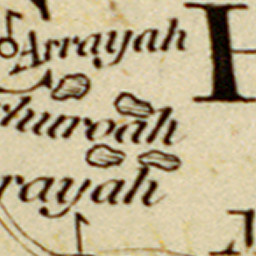 Arrayah
huroah
rayah